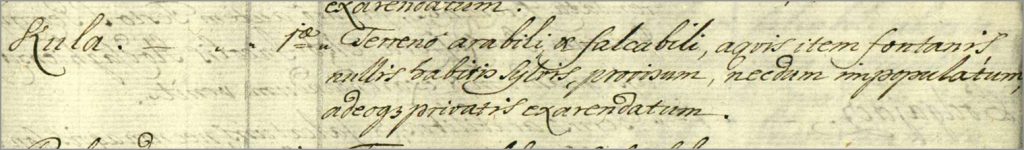 exarendatum.
Kula. — „ „ 1æ „ Terreno arabili, & falcabili, aqvis item fontanis
nullis habitis sylvis, provisum, necdum impopulatum,
adeoq3 privatis exarendatum.